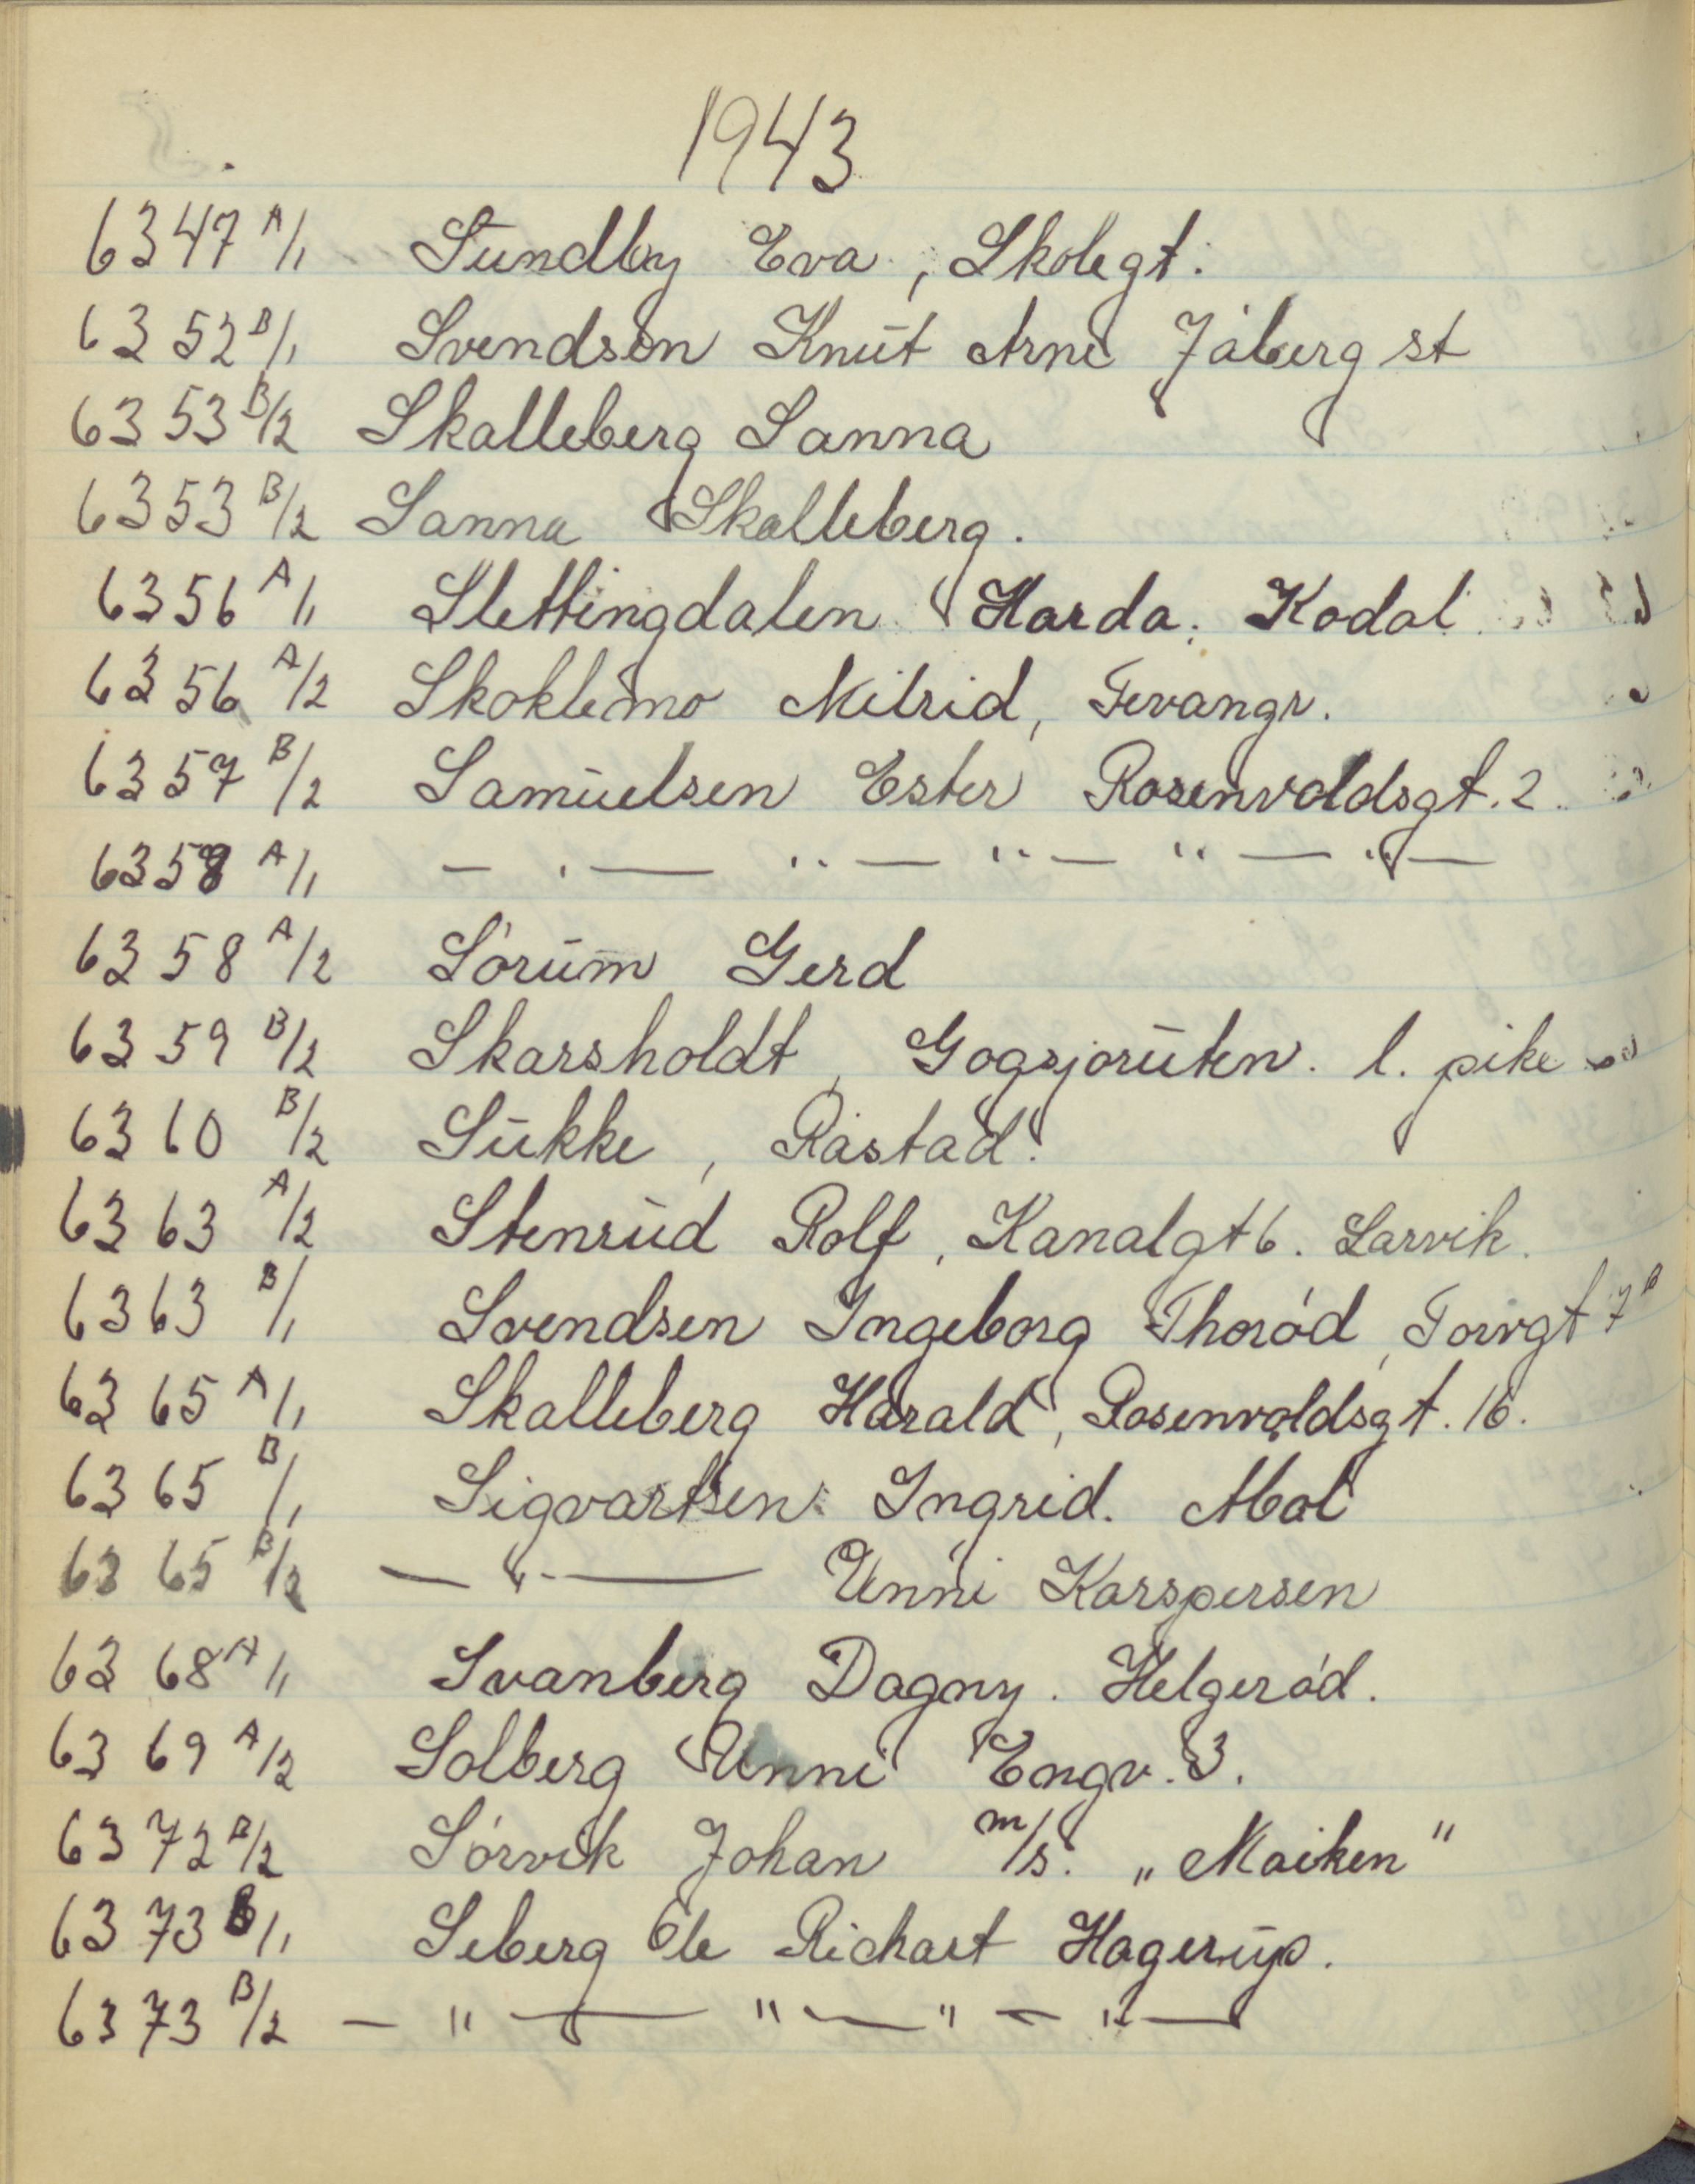 1943
6347 A/1 Sundby Eva, Skolegt.
6352 B/1 Svendsen Knut Arne Jåberg st
6353 B/2 Skalleberg Sanna
6353 B/2 Sanna Skalleberg.
6356 A/1 Slettingdalen Harda. Kodal
6356 A/2 Skoklemo Milrid, Fevangr.
6357 B/2 Samuelsen Ester Rosenvoldsgt. 2
6358 A/1 — " — " — " — " — " —
6358 A/2 Sórum Gerd
6359 B/2 Skarsholdt, Gogsjoruten. l. pike
6360 B/2 Sukke, Råstad.
6363 A/2 Stenrud Rolf, Kanalgt 6. Larvik.
6363 B/1 Svendsen Ingeborg Thoród, Torvgt 7 B
6365 A/1 Skalleberg Harald, Rosenvoldsgt. 16.
6365 B/1 Sigvartsen Ingrid. Abal
6365 B/2 — " — Unni Karspersen
6368 A/1 Svanberg Dagny. Helgeród.
6369 A/2 Solberg Unni Engv. 3.
6372 B/2 Sórvik Johan m/s. „Maiken"
6373 B/1 Seberg Ole Richart Hagerup.
6373 B/2 — " — " — " — " —